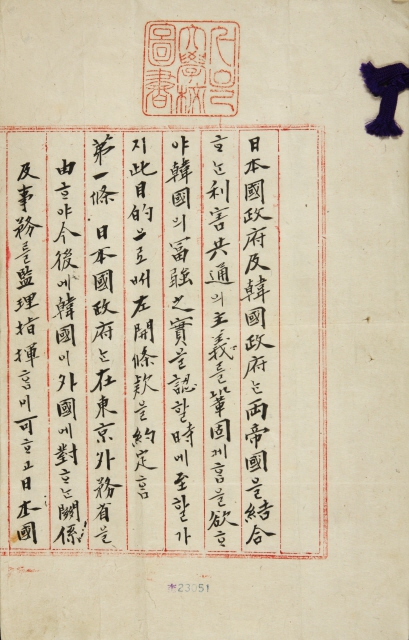 서울
大學校
圖書
日本國政府及韓國政府ᄂᆞᆫ兩帝國을結合
ᄒᆞᄂᆞᆫ利害共通의主義를鞏固케ᄒᆞᆷ을欲ᄒᆞ
야韓國의富强之實을認ᄒᆞᆯ時에至ᄒᆞᆯ가
지此目的으로ᄡᅥ左開條欵을約定ᄒᆞᆷ
第一條 日本國政府ᄂᆞᆫ在東京外務省을
由ᄒᆞ야今後에韓國이外國에對ᄒᆞᄂᆞᆫ關係
及事務를監理指揮ᄒᆞ미可ᄒᆞ고日本國
*23051